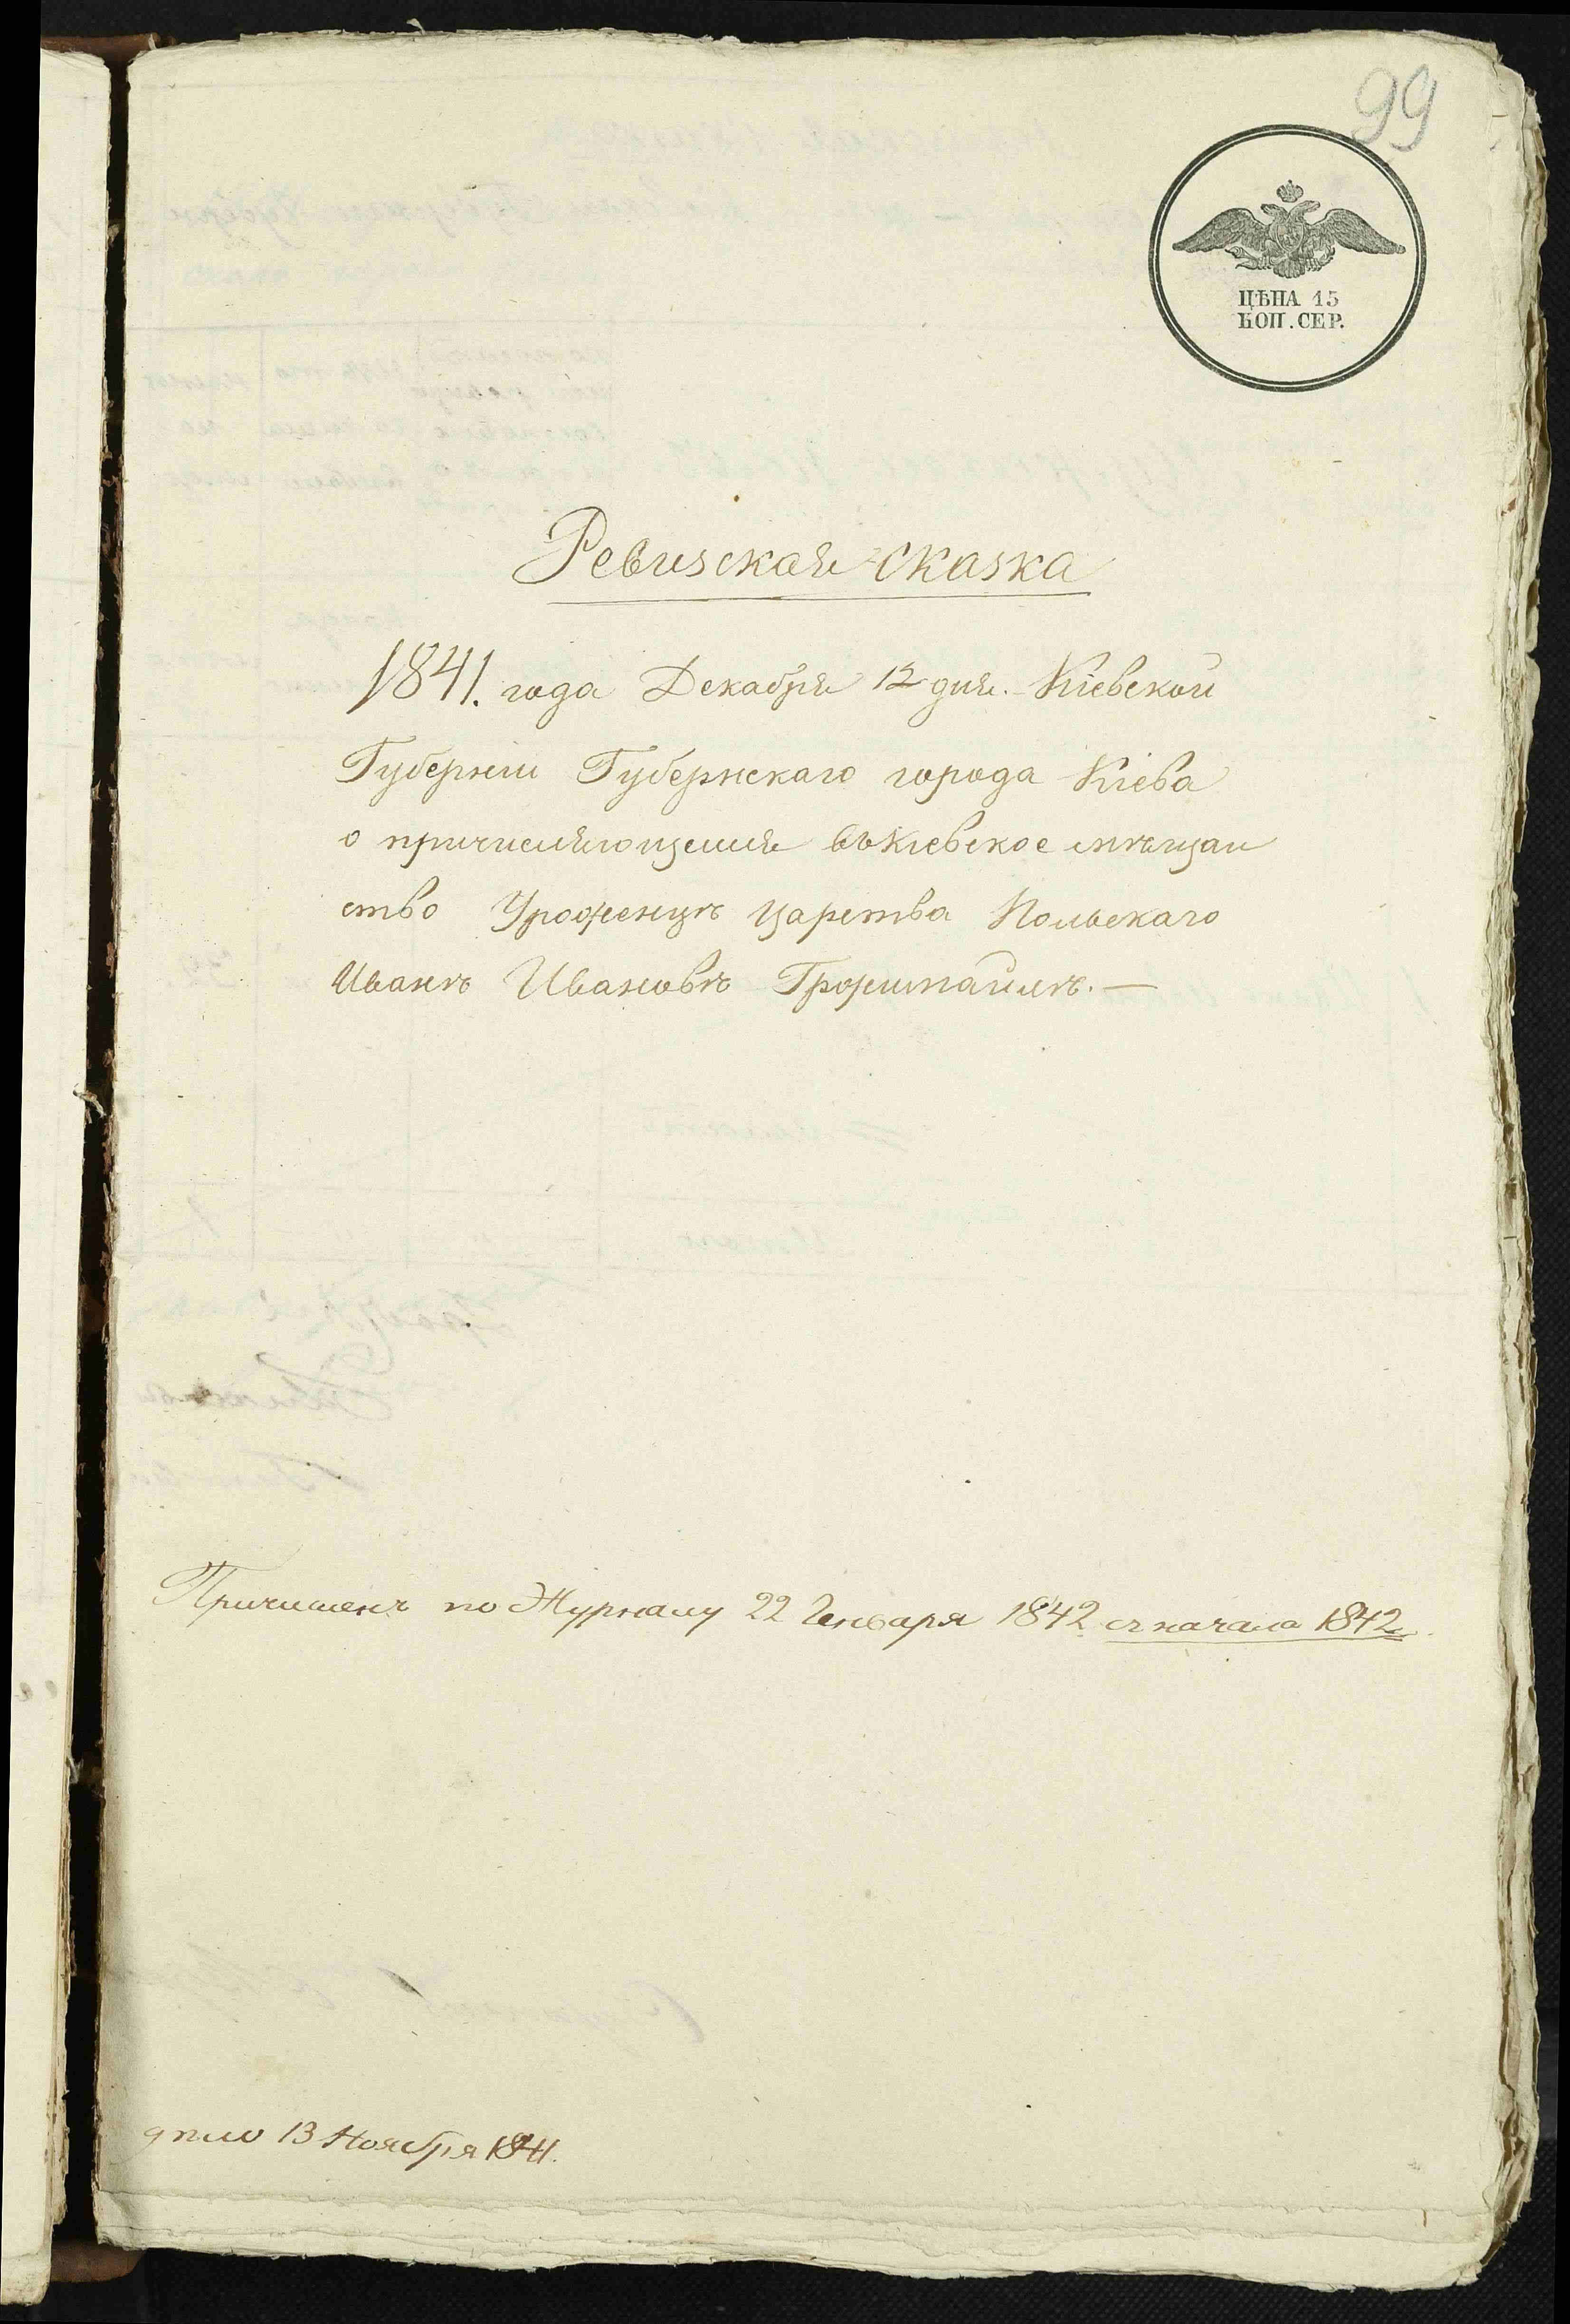 99
ЦѢНА 15
КОП. СЕР.
Ревизская сказка
1841. года Декабря 12 дня. Кіевской
Губерніи Губернскаго города Кіева
о причисляющемся въ Кіевское мѣщан
ство Уроженцѣ Царства Польскаго
Иванѣ Ивановѣ
Причисленъ по Журналу 22 Генваря 1842 съ начала 1842
дѣло 13 Ноября 1841.